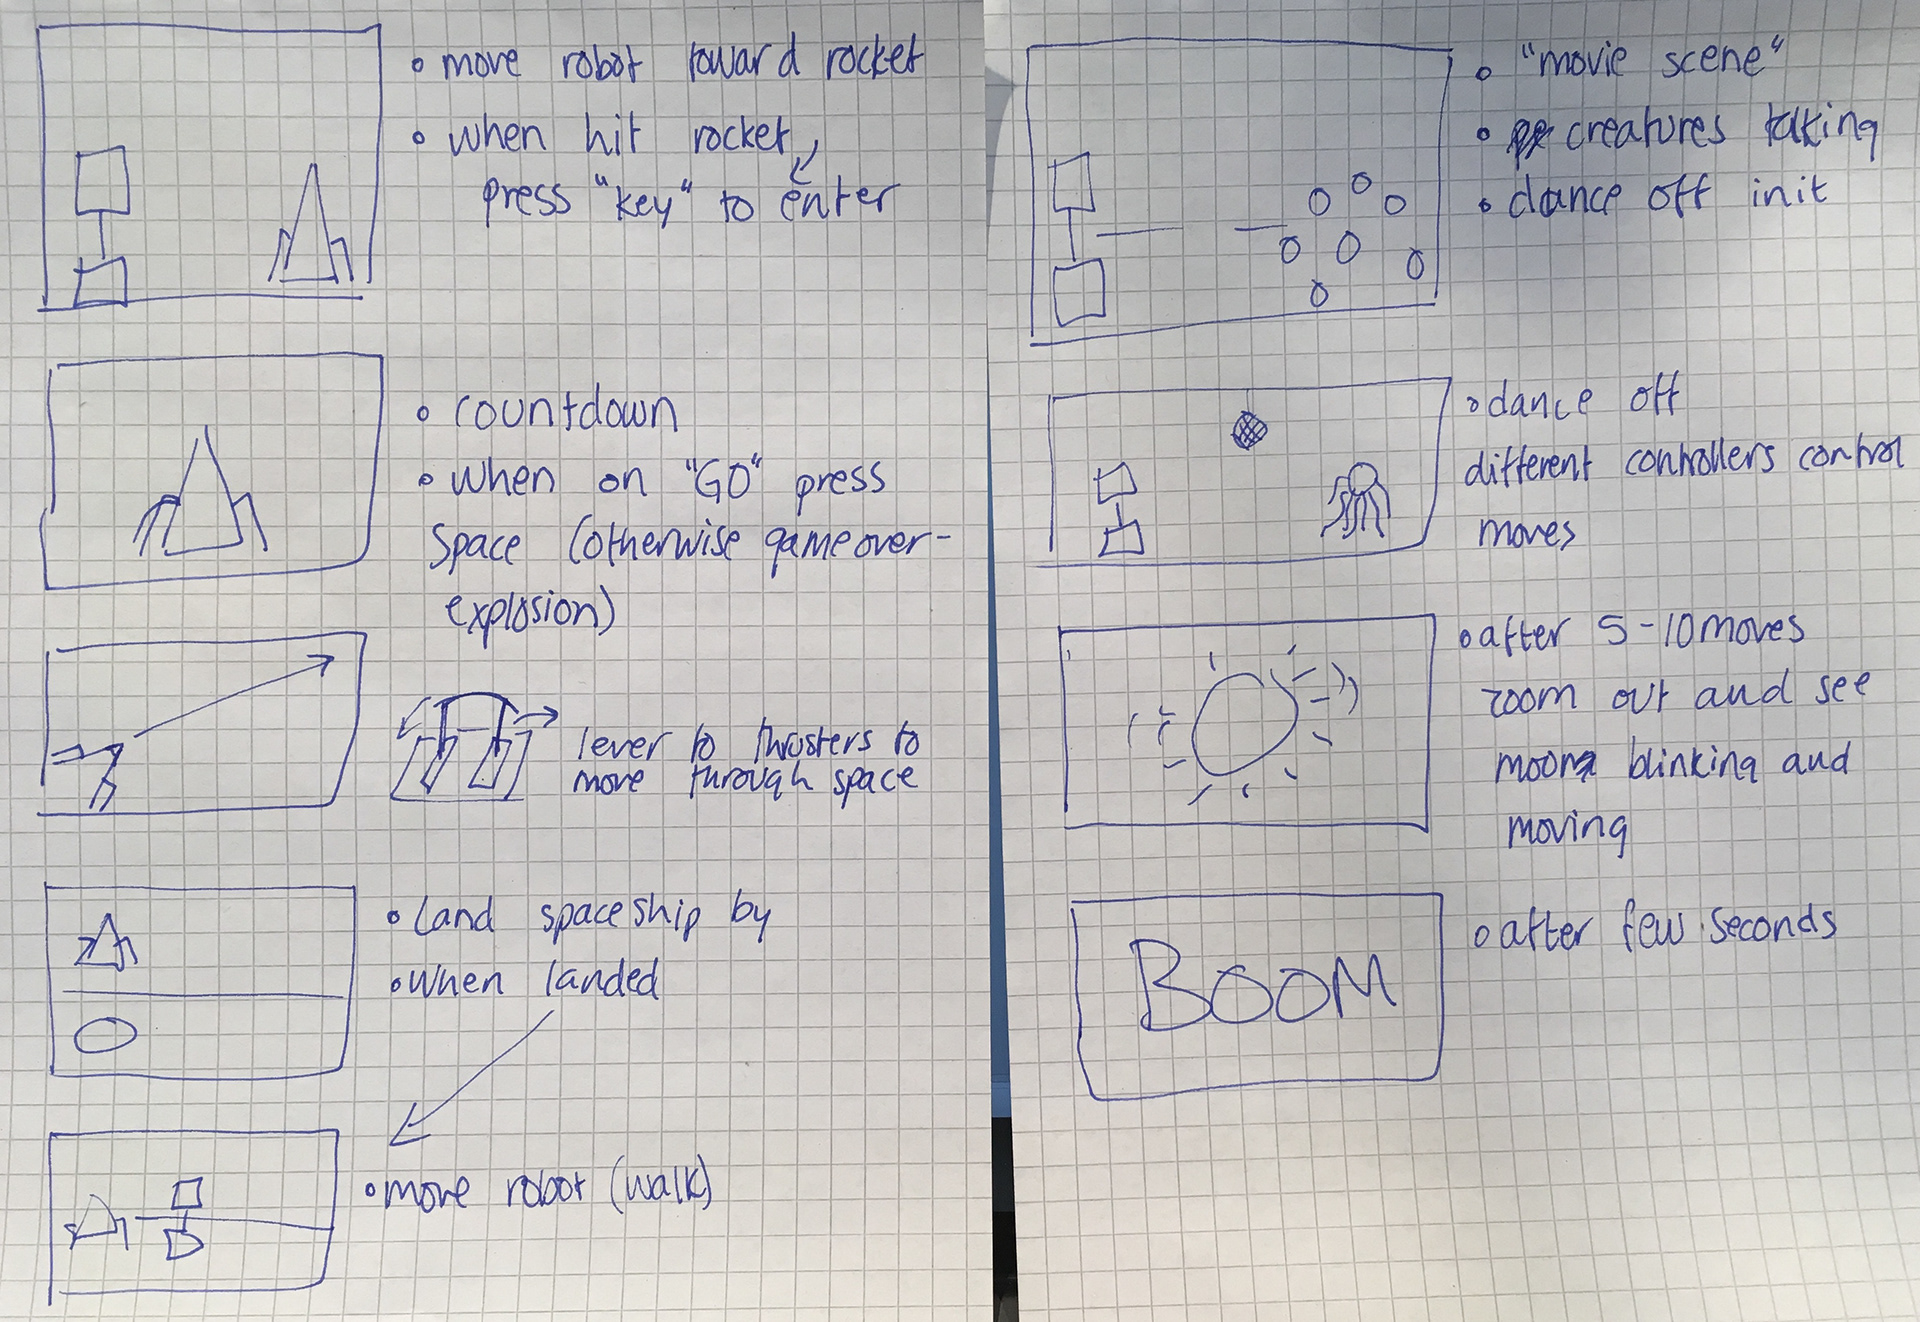 • move robot toward rocket
• when hit rocket,
press "key" to enter
• countdown
• when on "GO" press
Space (otherwise game over-
explosion)
lever to thrusters to
move through space
• Land spaceship by
• when landed
• move robot (walk)
• "movie scene"
• creatures talking
• dance off init
• dance off
different controllers control
moves
• after 5-10 moves
zoom out and see
moon blinking and
moving
BOOM
• after few seconds